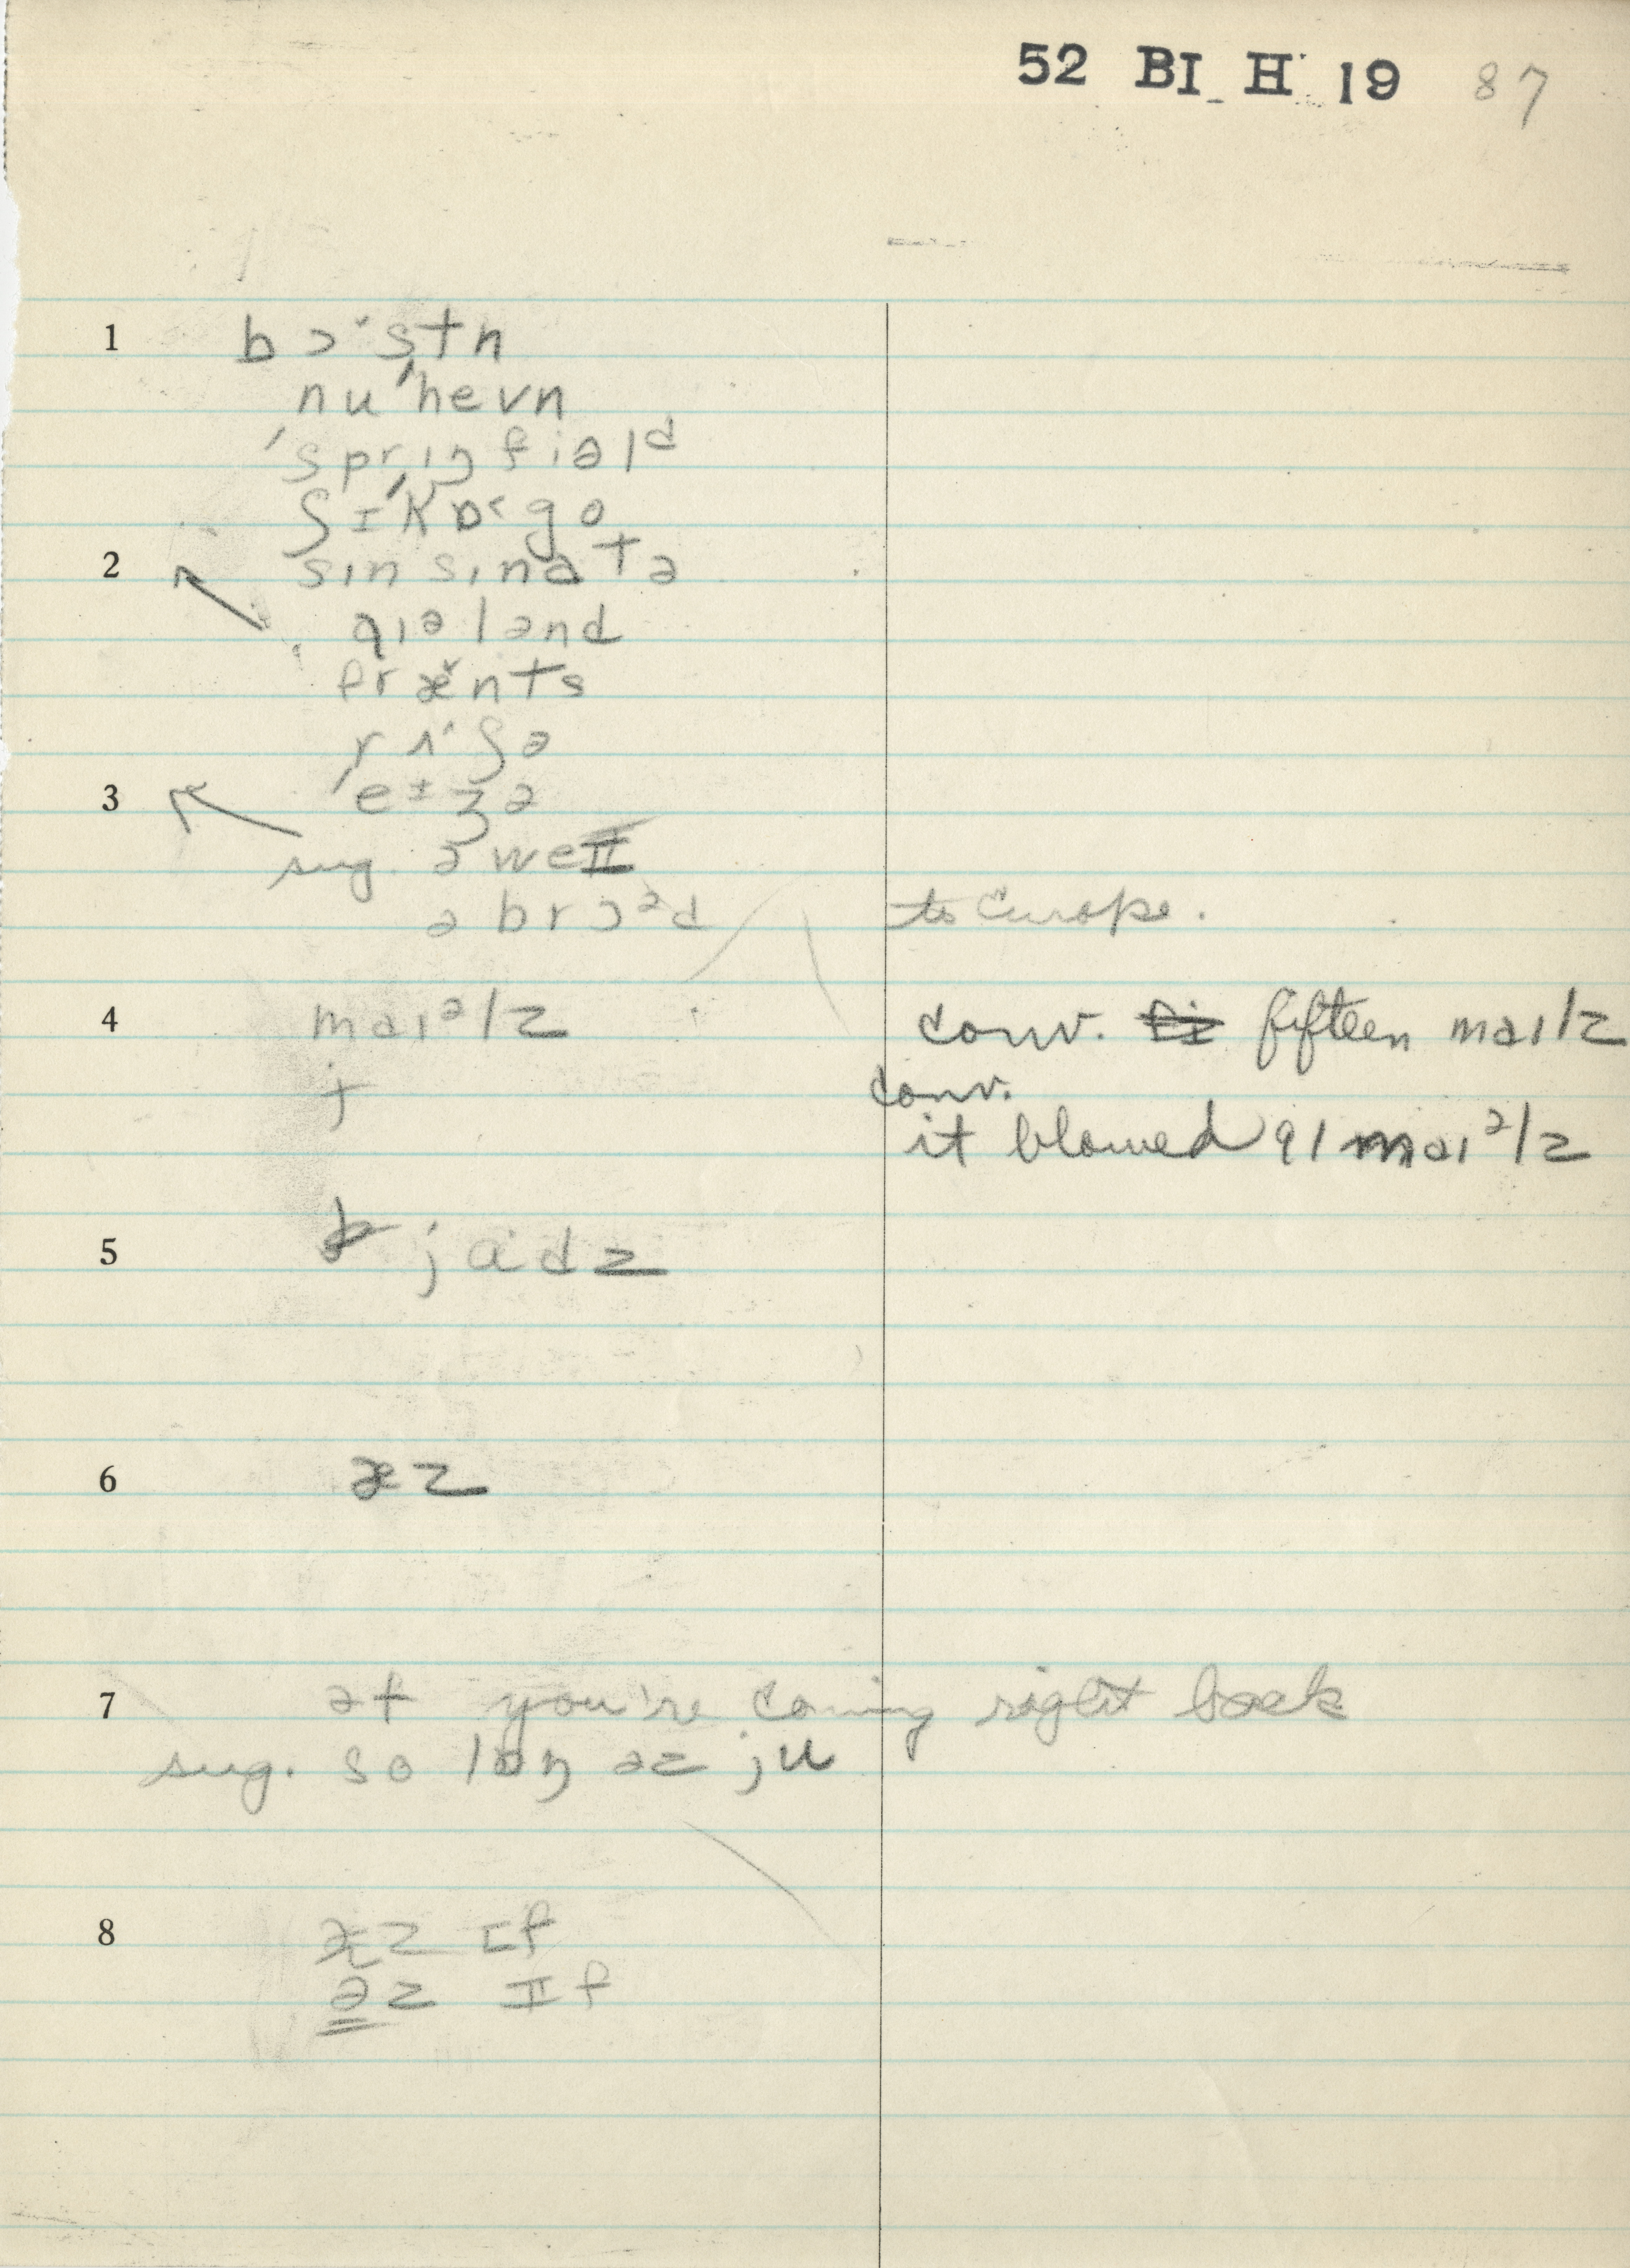 52 BI H 19 87
1 bɔ˞stn
nu'hevn
'sprɪŋfiəld
ʃɪ'kɒ˂go
2 sɪnsɪnatə
aɪələnd
fræ̆nts
rʌ˄ʃə
3 'eɪʒə
sug. əweɪ
əbrɔᵊd to Europe.
4 maɪᵊlz conv. fifteen maɪlz
conv.
it blowed 91 maɪᵊlz
5 jadz
6 æz
7 əf you're coming right back
sug. so lɒŋ əz ju
8 æz ɪf
əz ɪf